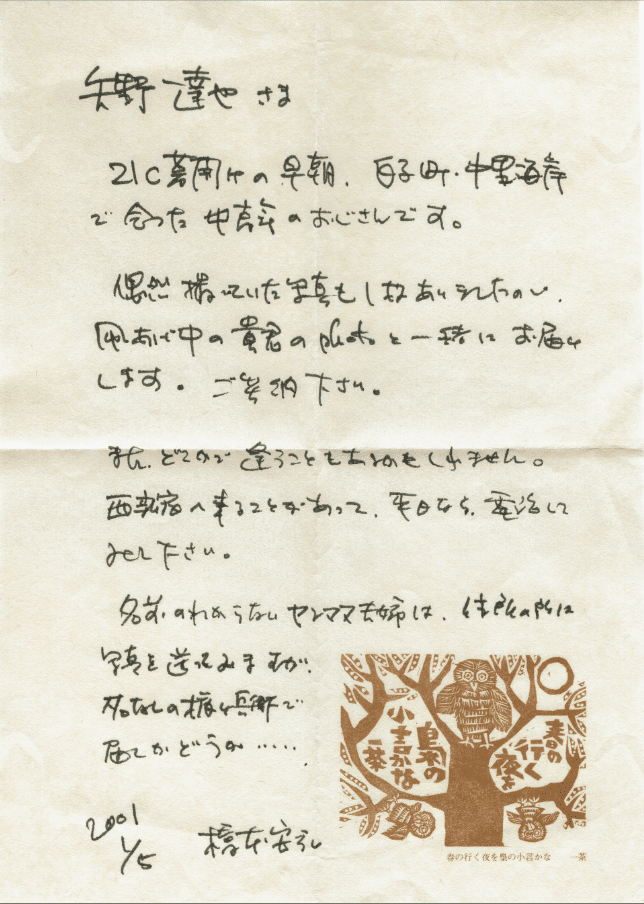 矢野達也さま
21C幕開けの早朝、白子町・中里海岸
で会った中高年のおじさんです。
偶然撮っていた写真も
中の貴君のphotoと一緒にお届け
します。ご笑納下さい。
また、どこかで逢うこともあるかもしれません。
西新宿へ来ることがあって、平日なら、電話して
みて下さい。
名前のわからないヤンママ夫婦は、住所の所に
写真を送ってみますが、
名なしの権兵衛で
届くかどうか……
2001
1/5
春の
行く
夜を
梟の
小言かな
一茶
春の行く夜を梟の小言かな 一茶